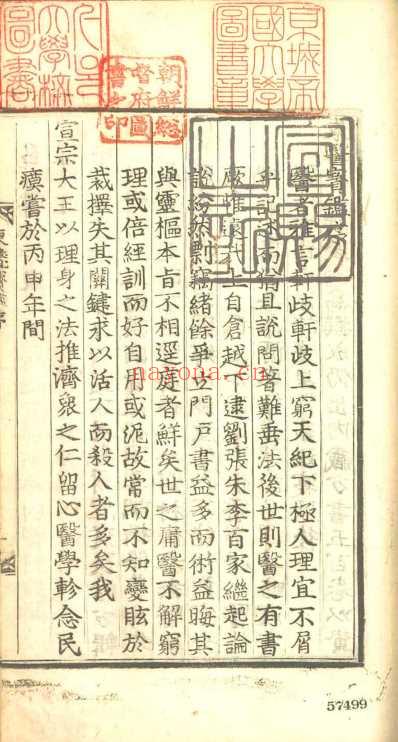 京城帝國大學圖書章
朝鮮總督府圖書之印
大學校圖書
宣賜之記
醫寶鑑序
醫者雅言軒岐軒岐上窮天紀下極人理宜不屑
乎記述而猶且說問著難垂法後世則醫之有書
厥惟遠哉上自倉越下逮劉張朱李百家繼起論
說紛然剽竊緖餘爭立門戶書益多而術益晦其
與靈樞本旨不相逕庭者鮮矣世之庸醫不解窮
理或倍經訓而好自用或泥故常而不知變眩於
裁擇失其關鍵求以活人而殺人者多矣我
宣宗大王以理身之法推濟衆之仁留心醫學軫念民
瘼嘗於丙申年間
nayona.cn
57499